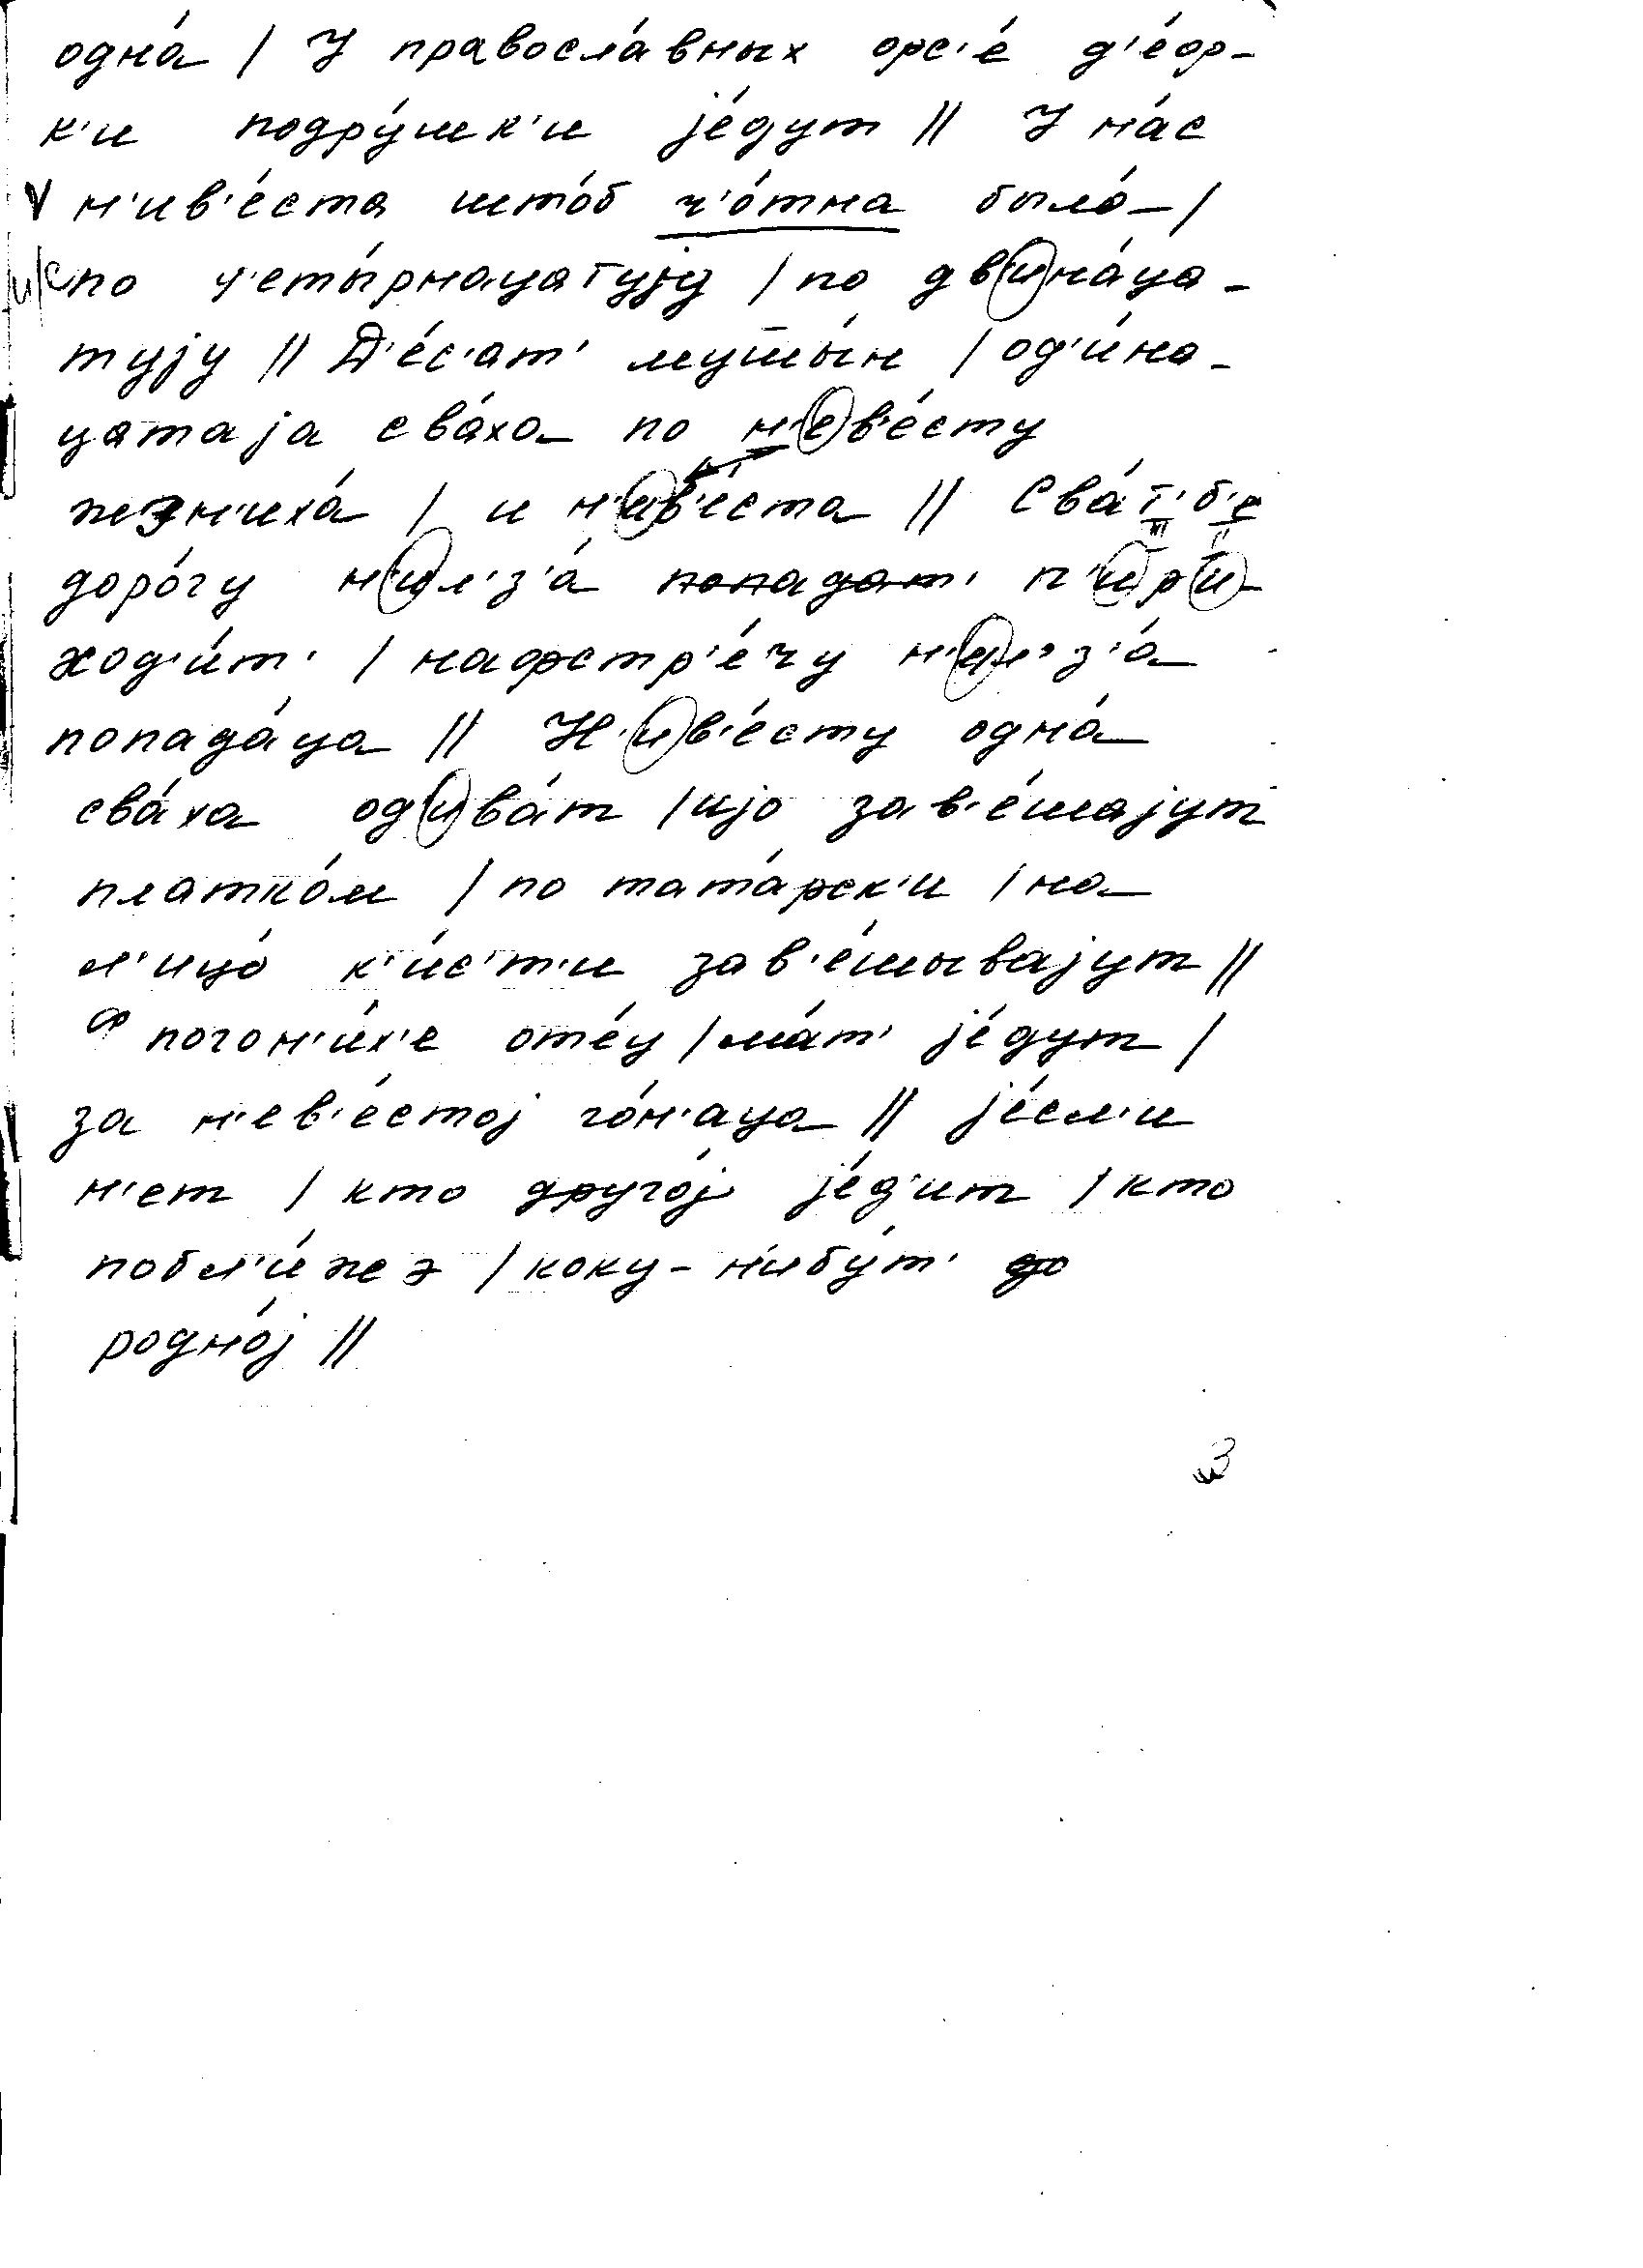 одна́ / У правосла́вных фс'е́ д'е́ф-
к'и подру́шк'и jе́дут // У на́с
н'ив'е́ста што́б ч'о́тна было́ /
по ч'еты́рнацатуjу / по двина́ца-
туjу // Д'е́с'ат' мушы́н / од'и́на-
цатаjа сва́ха по н'ев'е́сту
жэн'иха́ / и н'ив'е́ста // Сва́т'б'е
доро́гу н'ил'з'а́ п'ири-
ход'и́т' / нафстр'е́чу н'ил'з'а́
попада́ца // Н'ив'е́сту одна́
сва́ха одива́т / иjо зав'е́шаjут
платко́м / по тата́рск'и / на
л'ицо́ к'и́с'т'и зав'е́шываjут //
Ф погон'и́х'е оте́ц / ма́т' jе́дут /
за н'ев'е́стоj го́н'аца // jе́сл'и
н'ет / кто друго́j jе́д'ит / кто
побл'и́жэ / коку-нибу́т' до
родно́j //
3